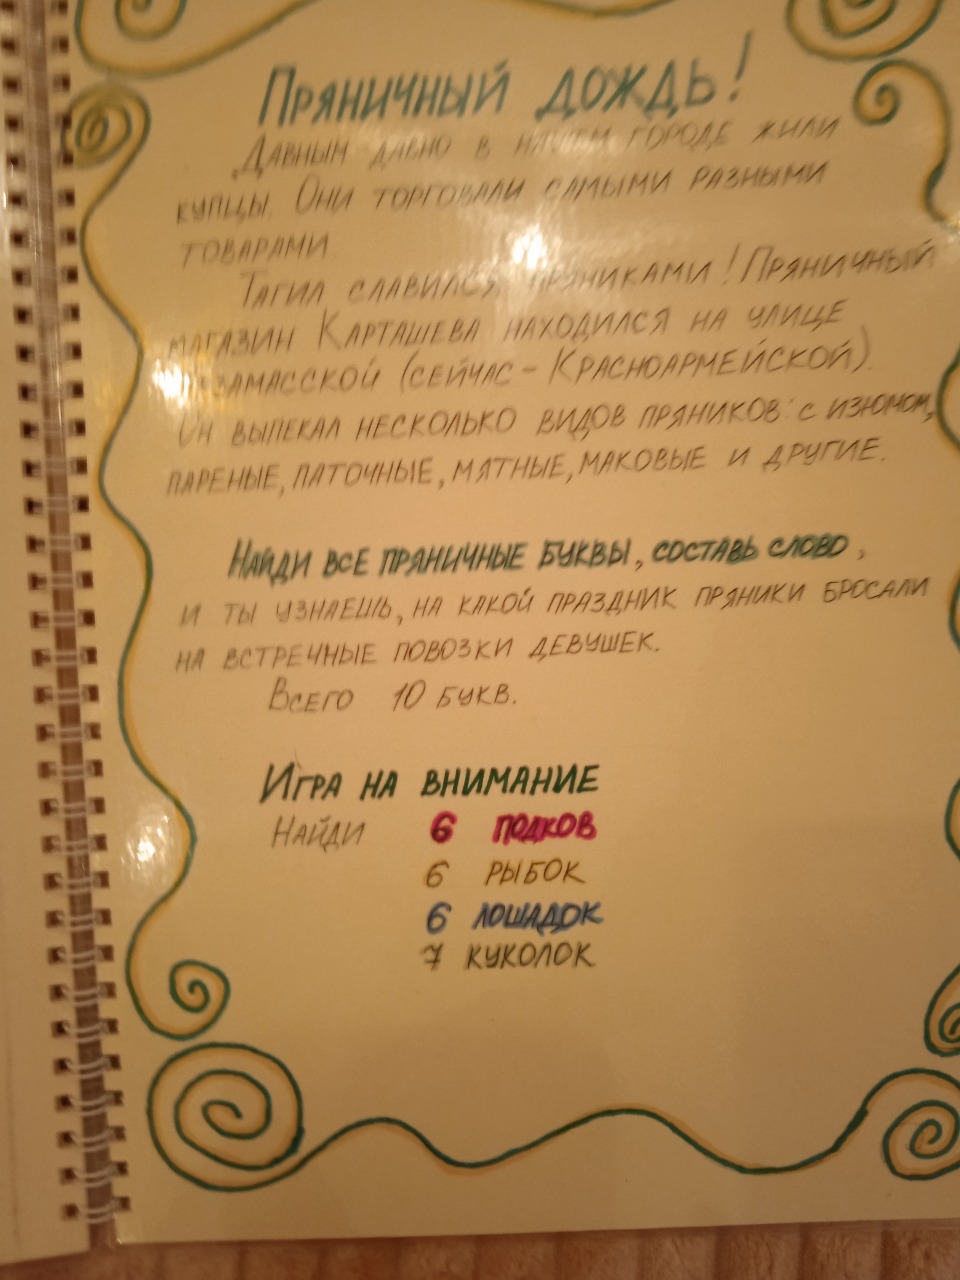 Пряничный дождь!
Давным-давно в нашем городе жили
купцы. Они торговали самыми разными
товарами.
Тагил славился пряниками! Пряничный
магазин Карташева находился на улице
Арзамасской (сейчас - Красноармейской).
Он выпекал несколько видов пряников: с изюмом,
пареные, паточные, мятные, маковые и другие.
Найди все пряничные буквы, составь слово,
и ты узнаешь, на какой праздник пряники бросали
на встречные повозки девушек.
Всего 10 букв.
Игра на внимание
Найди 6 подков
6 рыбок
6 лошадок
7 куколок